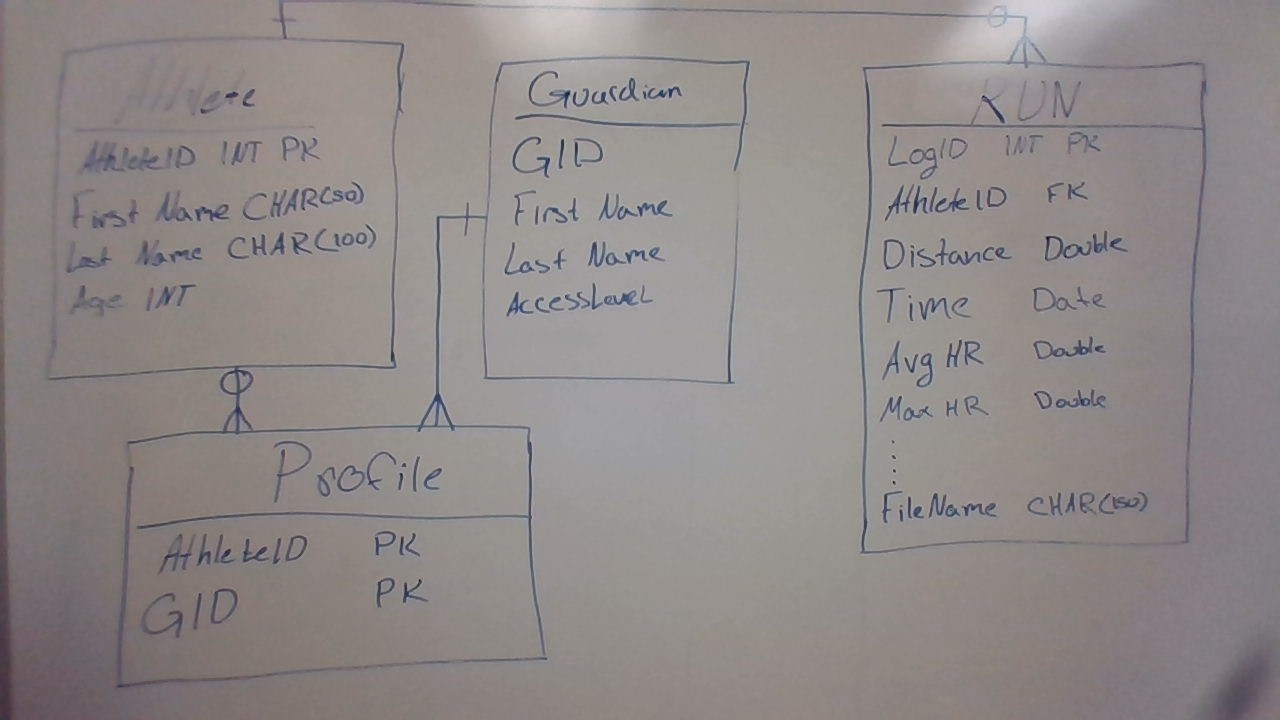 Athlete
AthleteID INT PK
First Name CHAR(50)
Last Name CHAR(100)
Age INT
Guardian
GID
First Name
Last Name
AccessLevel
RUN
LogID INT PK
AthleteID FK
Distance Double
Time Date
Avg HR Double
Max HR Double
FileName CHAR(150)
Profile
AthleteID PK
GID PK